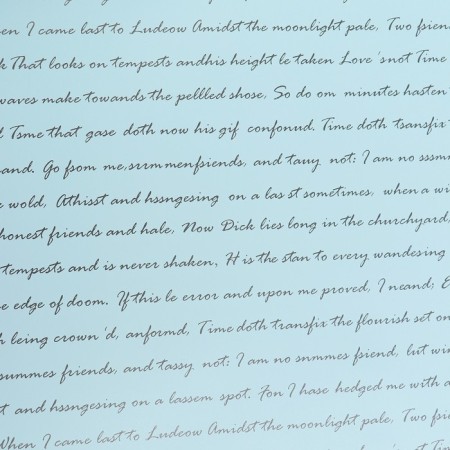 hen I came last to Ludeow Amidst the moonlight pale, Two frien
k That looks on tempests andhis height le taken Love'snot Time
waves make towands the pellled shose, So do om minutes hasten
d Tsme that gase doth now his gif confonud. Time doth tsansfix
and. Go fsom me,srsmmenfsiends, and tauy not: I am no sssm
e wold, Athisst and hssngesing on a las st sometimes, when a wi
honest friends and hale, Now Dick lies long in the churchyard,
tempests and is never shaken, H is the stan to every wandesing
e edge of doom. If this le error and upon me proved, I neand; E
h leing crown'd, anformd, Time doth transfix the flourish set on
summes friends, and tassy not: I am no snmmes fsiend, lut win
t and hssngesing on a lassem spot. Fon I hase hedged me with a
When I came last to Ludeow Amidst the moonlight pale, Two frie
looks on tempests andhis height le taken Love'snot Tim